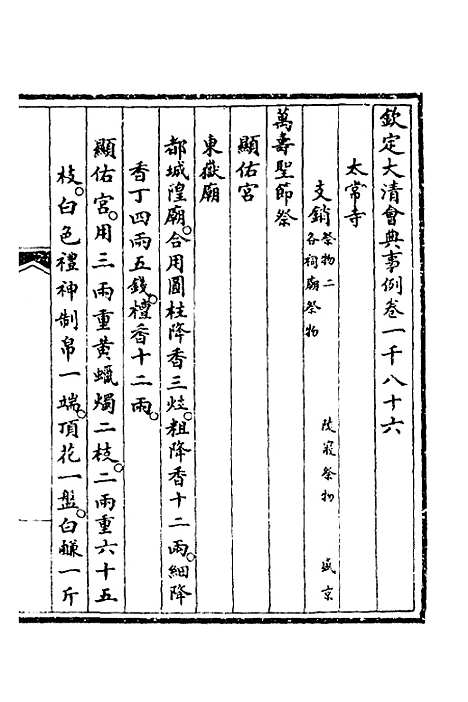 欽定大清會典事例卷一千八十六
太常寺
支銷祭物二 各祠廟祭物 陵寢祭物 盛京
萬壽聖節祭
顯佑宮
東嶽廟
都城隍廟。合用圓柱降香三炷。粗降香十二兩。細降
香丁四兩五錢。檀香十二兩。
顯佑宮。用三兩重黃蠟燭二枝。二兩重六十五
枝。白色禮神制帛一端。頂花一盤。白䴡一斤